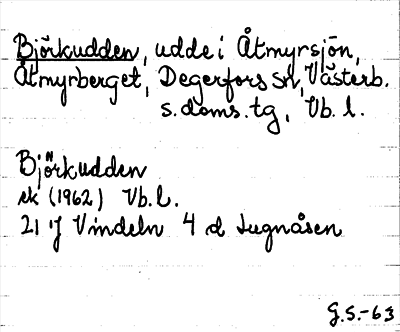 Björkudden, udde i Åtmyrsjön,
Åtmyrberget, Degerfors sn, Västerb.
s. doms. tg, Vb. l.
Björkudden
ek (1962) Vb. l.
21 J Vindeln 4 d Lugnåsen
G.S.-63